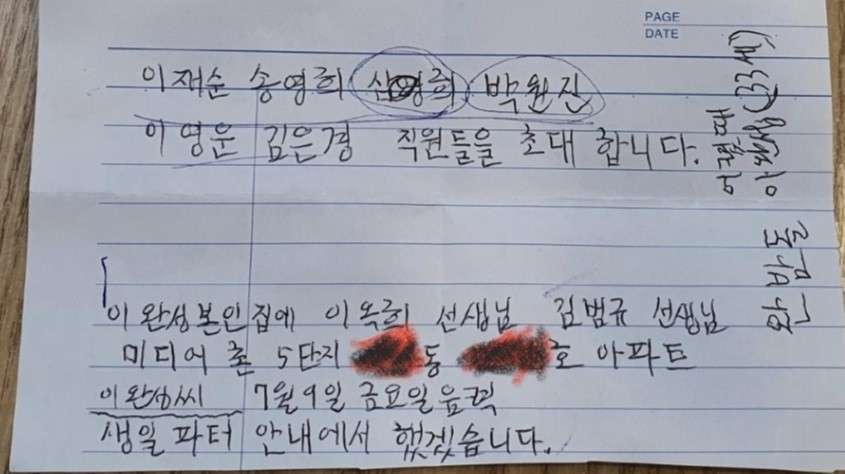 PAGE
DATE
이재순 송영희 박원진
이영운 김은경 직원들을 초대 합니다.
이완성본인집에 이옥희 선생님 김범규 선생님
미디어 촌 5단지 동 호 아파트
이완성씨 7월9일 금요일음력
생일파터 안내에서 했겠습니다.
(33세)